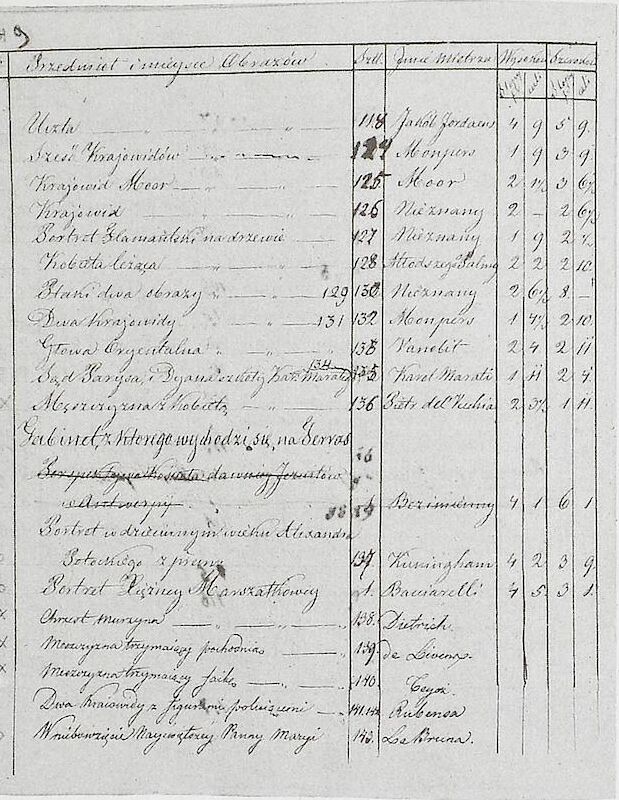 49
Przedmiot i mieysce Obrazów Szt. Jmie Mistrza Wysokość Szerokość
Stopy cali Stopy cali
Uczta 118 Jakób Jordaens 4 9 5 9.
Sześć Krajowidów 124 Monpers 1 9 3 9
Krajowid Moor 125 Moor 2 1½ 3 6½
Krajowid 126 Nieznany 2 – 2 6½
Portret Flamantski na drzewie 127 Nieznany 1 9 2
Kobieta leżąca 128 Młodszego Palmy 2 2 2 10.
Ptaki dwa obrazy 129 130 Nieznany 2 6½ 8 –
Dwa Krajowidy 131 132 Monpers 1 4½ 2 10.
Głowa Oryentalna 133 Vanobit 2 4 2 11
Sąd Parysa, i Dyana szkoły Kar: Marati 134 135 Karol Marati 1 11 2 4.
Męszczyzna z Kobietą 136 Pietr del Vechia 2 3½ 1 11.
Gabinet, z ktorego wychodzi się na Terras
Perspektywa Kościoła dawney Jezuitów
w Antwerpij Bezimienny 4 1 6 1
Portret w dziecinnym wieku Alexandra
Potockiego z psem 137. Kuningham 4 2 3 9.
Portret Xiężney Marszałkowey 1. Bacciarelli 4 5 3 1.
Chrzest murzyna 138. Dietrich.
Mesczyzna trzymaiący pochodnią 139. de Livens.
Mesczyzna trzymaiący faikę 140. Tegoż.
Dwa Kraiowidy z figurami poluiącemi 141.142 Rubensa
Wniebowzięcie Nayświętszey Panny Maryi 143. Le Bruna.